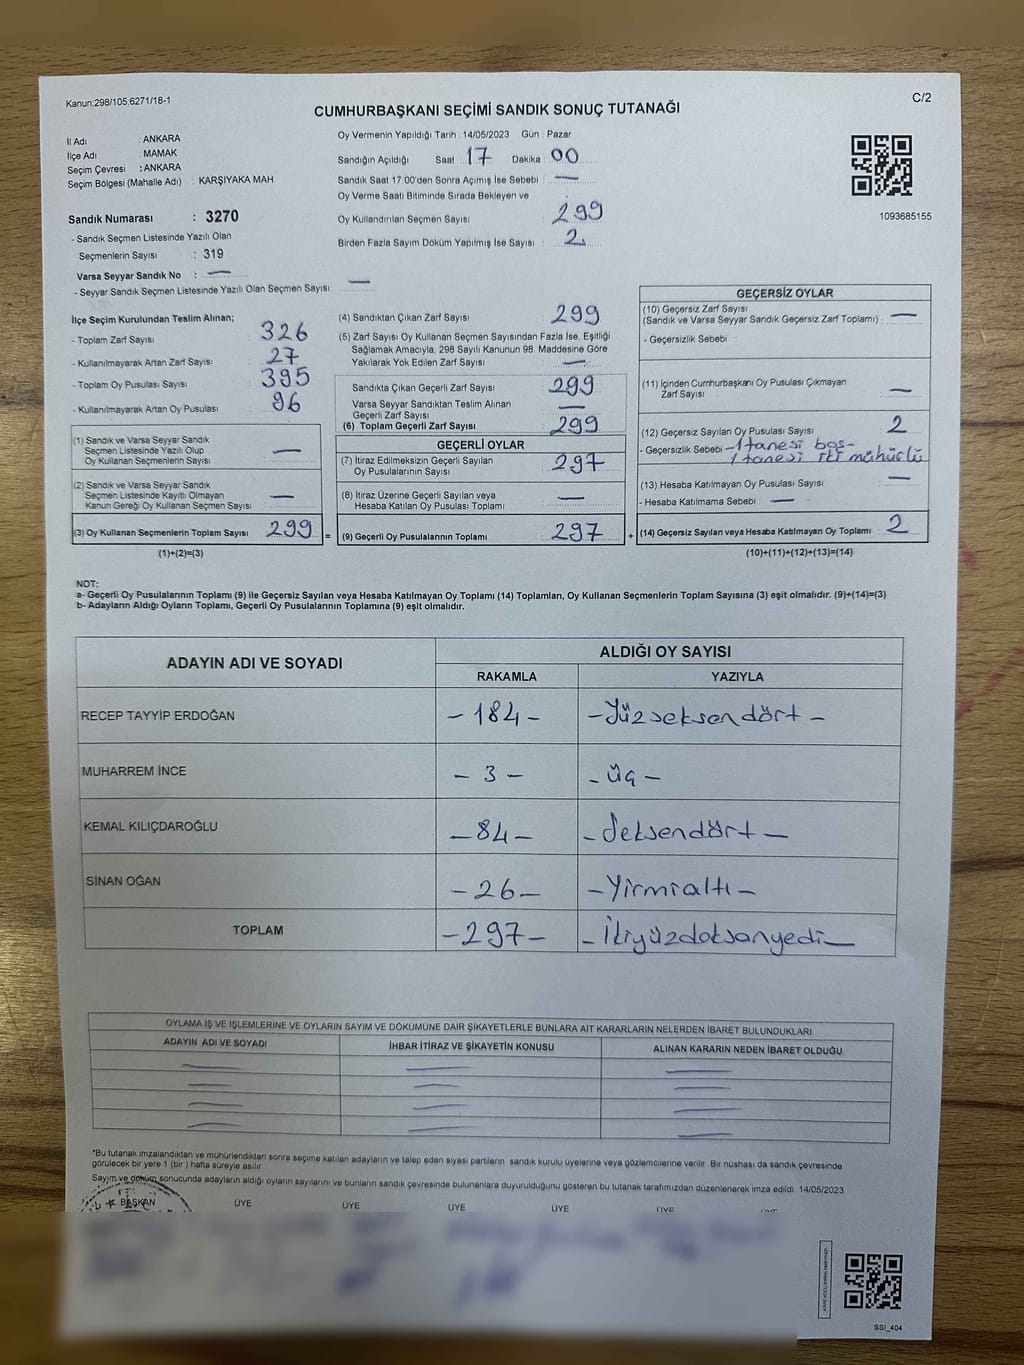 Kanun:298/105,6271/18-1
C/2
CUMHURBAŞKANI SEÇİMİ SANDIK SONUÇ TUTANAĞI
İl Adı : ANKARA
İlçe Adı : MAMAK
Seçim Çevresi : ANKARA
Seçim Bölgesi (Mahalle Adı) : KARŞIYAKA MAH.
Sandık Numarası : 3270
- Sandık Seçmen Listesinde Yazılı Olan
Seçmenlerin Sayısı : 319
Varsa Seyyar Sandık No : —
- Seyyar Sandık Seçmen Listesinde Yazılı Olan Seçmen Sayısı: —
Oy Vermenin Yapıldığı Tarih : 14/05/2023 Gün : Pazar
Sandığın Açıldığı Saat : 17 Dakika : 00
Sandık Saat 17:00'den Sonra Açımış İse Sebebi : —
Oy Verme Saati Bitiminde Sırada Bekleyen ve
Oy Kullandırılan Seçmen Sayısı : 299
Birden Fazla Sayım Döküm Yapılmış İse Sayısı : 2
1093685155
İlçe Seçim Kurulundan Teslim Alınan;
- Toplam Zarf Sayısı : 326
- Kullanılmayarak Artan Zarf Sayısı : 27
- Toplam Oy Pusulası Sayısı : 395
- Kullanılmayarak Artan Oy Pusulası : 96
(1) Sandık ve Varsa Seyyar Sandık
Seçmen Listesinde Yazılı Olup
Oy Kullanan Seçmenlerin Sayısı : —
(2) Sandık ve Varsa Seyyar Sandık
Seçmen Listesinde Kayıtlı Olmayan
Kanun Gereği Oy Kullanan Seçmen Sayısı : —
(3) Oy Kullanan Seçmenlerin Toplam Sayısı : 299 =
(1)+(2)=(3)
(4) Sandıktan Çıkan Zarf Sayısı : 299
(5) Zarf Sayısı Oy Kullanan Seçmen Sayısından Fazla İse, Eşitliği
Sağlamak Amacıyla, 298 Sayılı Kanunun 98. Maddesine Göre
Yakılarak Yok Edilen Zarf Sayısı : —
Sandıkta Çıkan Geçerli Zarf Sayısı : 299
Varsa Seyyar Sandıktan Teslim Alınan
Geçerli Zarf Sayısı : —
(6) Toplam Geçerli Zarf Sayısı : 299
GEÇERLİ OYLAR
(7) İtiraz Edilmeksizin Geçerli Sayılan
Oy Pusulalarının Sayısı : 297
(8) İtiraz Üzerine Geçerli Sayılan veya
Hesaba Katılan Oy Pusulası Toplamı : —
(9) Geçerli Oy Pusulalarının Toplamı : 297 +
GEÇERSİZ OYLAR
(10) Geçersiz Zarf Sayısı
(Sandık ve Varsa Seyyar Sandık Geçersiz Zarf Toplamı) : —
- Geçersizlik Sebebi :
(11) İçinden Cumhurbaşkanı Oy Pusulası Çıkmayan
Zarf Sayısı : —
(12) Geçersiz Sayılan Oy Pusulası Sayısı : 2
- Geçersizlik Sebebi -1 tanesi boş-
1 tanesi iki mühürlü
(13) Hesaba Katılmayan Oy Pusulası Sayısı : —
- Hesaba Katılmama Sebebi : —
(14) Geçersiz Sayılan veya Hesaba Katılmayan Oy Toplamı : 2
(10)+(11)+(12)+(13)=(14)
NOT:
a- Geçerli Oy Pusulalarının Toplamı (9) ile Geçersiz Sayılan veya Hesaba Katılmayan Oy Toplamı (14) Toplamları, Oy Kullanan Seçmenlerin Toplam Sayısına (3) eşit olmalıdır. (9)+(14)=(3)
b- Adayların Aldığı Oyların Toplamı, Geçerli Oy Pusulalarının Toplamına (9) eşit olmalıdır.
ADAYIN ADI VE SOYADI ALDIĞI OY SAYISI
RAKAMLA YAZIYLA
RECEP TAYYİP ERDOĞAN -184- -Yüzseksendört-
MUHARREM İNCE -3- -üç-
KEMAL KILIÇDAROĞLU -84- -Seksendört-
SİNAN OĞAN -26- -Yirmialtı-
TOPLAM -297- -İkiyüzdoksanyedi-
OYLAMA İŞ VE İŞLEMLERİNE VE OYLARIN SAYIM VE DÖKÜMÜNE DAİR ŞİKAYETLERLE BUNLARA AİT KARARLARIN NELERDEN İBARET BULUNDUKLARI
ADAYIN ADI VE SOYADI İHBAR İTİRAZ VE ŞİKAYETİN KONUSU ALINAN KARARIN NEDEN İBARET OLDUĞU
*Bu tutanak imzalandıktan ve mühürlendikten sonra seçime katılan adayların ve talep eden siyasi partilerin sandık kurulu üyelerine veya gözlemcilerine verilir. Bir nüshası da sandık çevresinde
görülecek bir yere 1 (bir ) hafta süreyle asılır.
Sayım ve döküm sonucunda adayların aldığı oyların sayılarını ve bunların sandık çevresinde bulunanlara duyurulduğunu gösteren bu tutanak tarafımızdan düzenlenerek imza edildi. 14/05/2023
BAŞKAN ÜYE ÜYE ÜYE ÜYE ÜYE
SSI_404